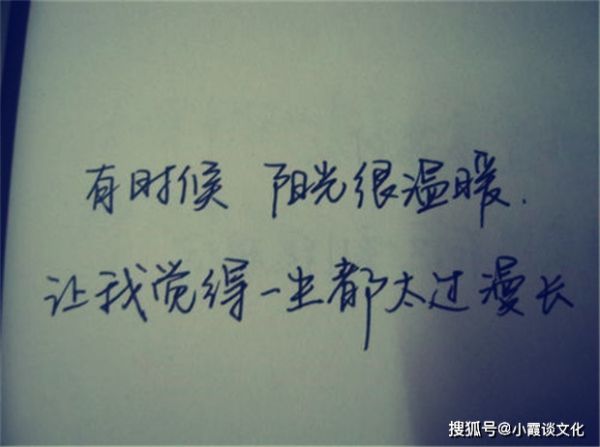 有时候 阳光很温暖.
让我觉得一生都太过漫长
搜狐号@小霞谈文化